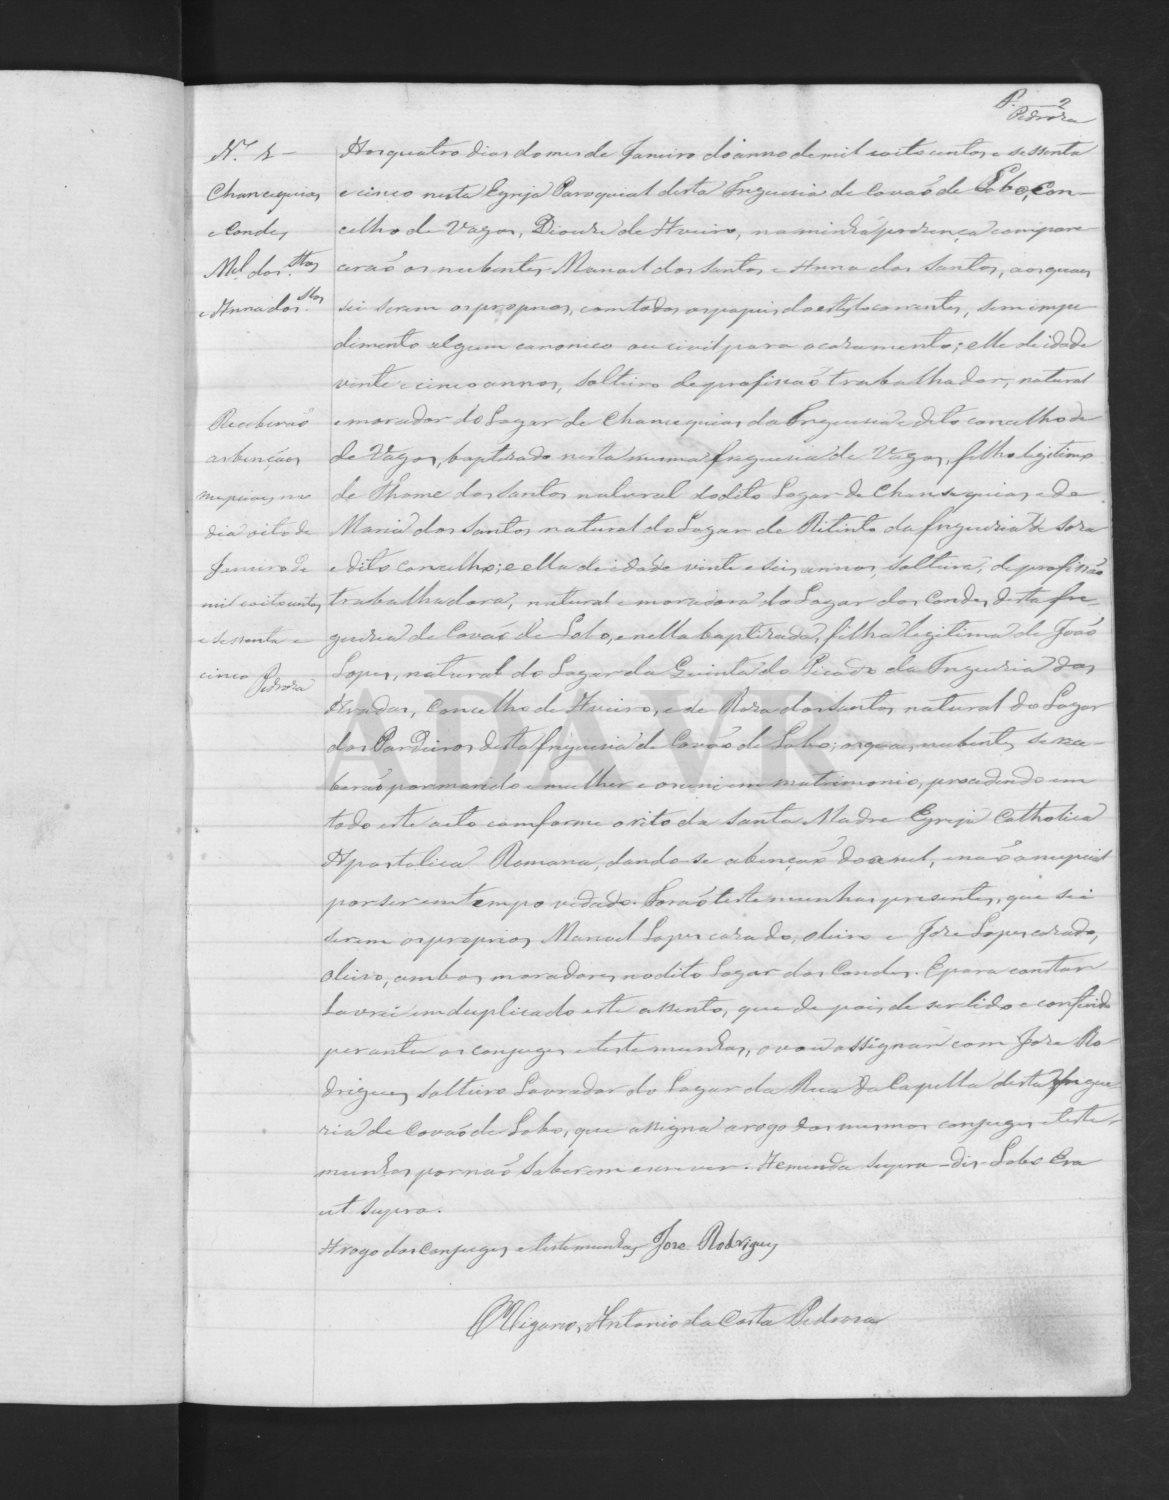 P. 2
Pedroza
N.º 1
Chancequias
e Condes
Mel. dos Stos
e Anna dos Stos
Receberaõ
as bençaõs
nupciaes no
dia oito de
Janeiro de
mil oito centos
e sessenta e
cinco Pedroza
Aos quatro dias do mes de Janeiro do anno de mil oito centos e sessenta
e cinco nesta Egreja Paroquial desta Freguesia de Covaõ de Lobo, Con-
celho de Vagos, Diocese de Aveiro, na minha presença compare-
ceraõ os nubentes Manoel dos Santos e Anna dos Santos, aos quaes
sei serem os proprios, com todos os papeis do estylo correntes, sem impe-
dimento algum canonico ou civil para o casamento; elle de idade
vinte e cinco annos, solteiro de profissaõ trabalhador, natural
e morador do Lugar de Chancequias da Freguesia e dito concelho de
de Vagos, baptizado nesta mesma freguesia de Vagos, filho legitimo
de Thome dos Santos natural do dito Lugar de Chansequias e de
Maria dos Santos natural do Lugar de Ritinto da freguesia de Soza
e dito concelho; e ella de idade vinte e seis annos, solteira, de profissaõ
trabalhadora, natural e moradora do Lugar dos Condes desta fre-
guezia de Covaõ de Lobo, e nella baptizada, filha legitima de Joaõ
Lopes, natural do Lugar da Quinta do Picado da Freguezia das
Aradas, Concelho de Aveiro, e de Roza dos Santos natural do Lugar
dos Pardieiros desta freguesia de Covaõ de Lobo; os quaes nubentes se rece-
beraõ por marido e mulher e os uni em matrimonio, procedendo em
todo este acto conforme o rito da Santa Madre Egreja Catholica
Apostolica Romana, dando-se a bençaõ do anel, e naõ a nupcial
por ser em tempo vedado. Foraõ testemunhas presentes, que sei
serem os proprios Manoel Lopes casado, oleiro e Joze Lopes casado,
oleiro, ambos moradores no dito Lugar dos Condes. E para constar
Lavrei em duplicado este assento, que depois de ser lido e conferido
perante os conjuges e testemunhas, o vou assignar com Joze Ro-
drigues solteiro Lavrador do Lugar da Rua da Capella desta fregue-
zia de Covaõ de Lobo, que assigna a rogo dos mesmos conjuges e teste-
munhas por naõ saberem escrever. A emenda supra diz Lobo Era
ut supra.
A rogo dos Conjuges e testemunhas Joze Rodrigues
O Vigario, Antonio da Costa Pedroza
ADAVR